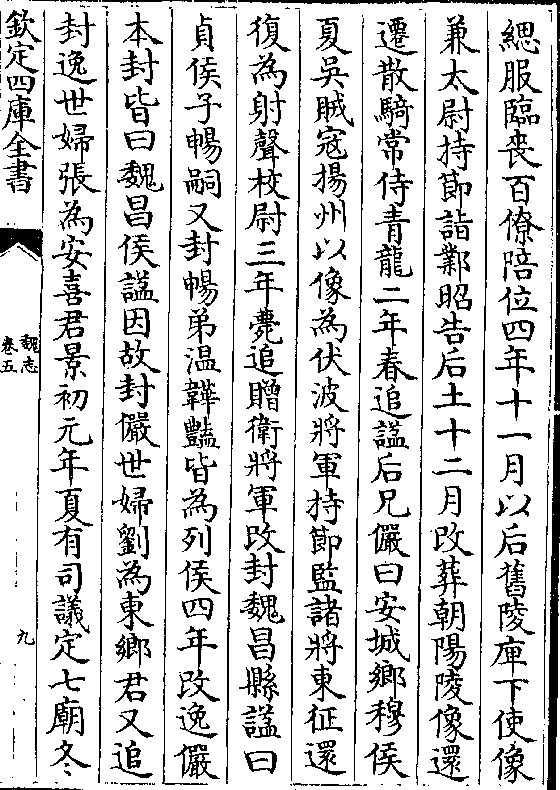 緦服臨喪百僚陪位四年十一月以后舊陵庫下使像
兼太尉持節詣鄴昭告后土十二月改葬朝陽陵像還
遷散騎常侍青龍二年春追諡后兄儼曰安城鄉穆侯
夏吳賊冦揚州以像為伏波將軍持節監諸將東征還
復為射聲校尉三年薨追贈衛將軍改封魏昌縣諡曰
貞侯子暢嗣又封暢弟温韡豔皆為列侯四年改逸儼
本封皆曰魏昌侯諡因故封儼世婦劉為東鄉君又追
封逸世婦張為安喜君景初元年夏有司議定七廟冬
欽定四庫全書
魏志
卷五
九